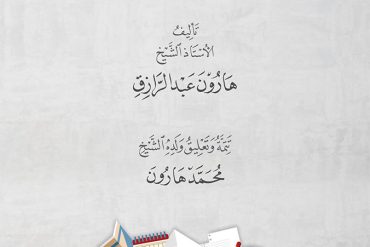 تَأْلِيفُ
الأُسْتَاذِ الشَّيْخِ
هَارُوْنَ عَبْدِ الرَّازِقِ
تَتِمَّةُ وَتَعْلِيقُ وَلَدِهِ الشَّيْخِ
مُحَمَّدْ هَارُونَ